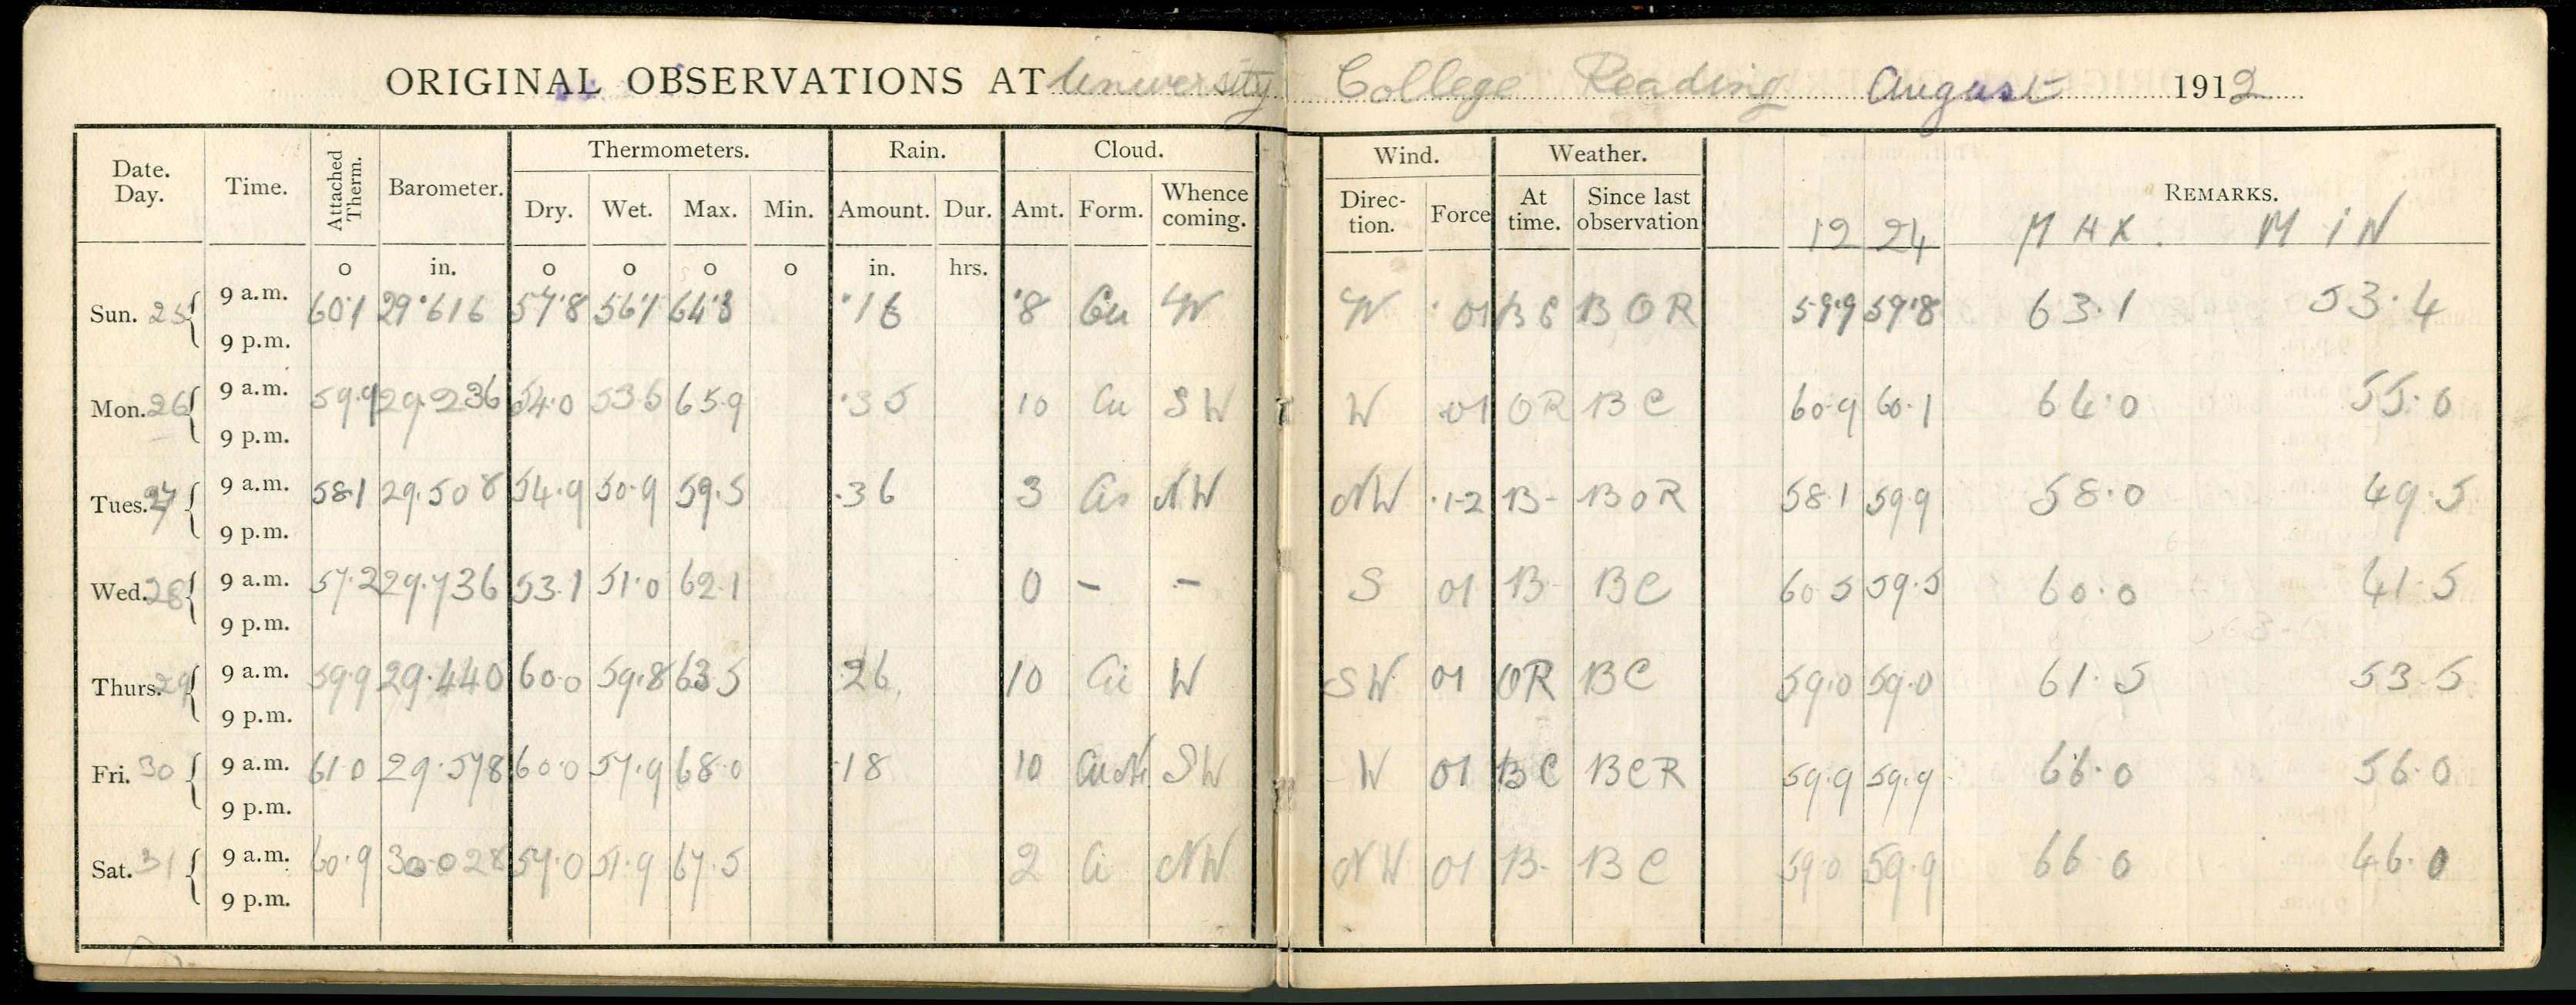 ORIGINAL OBSERVATIONS AT University College Reading August 1912
Date. Day. Time. Attached Therm. Barometer. Thermometers. Rain. Cloud. Wind. Weather. REMARKS.
Dry. Wet. Max. Min. Amount. Dur. Amt. Form. Whence coming. Direc-tion. Force At time. Since last observation 12 24 MAX. MIN
o in. o o o o in. hrs.
Sun. 25 9 a.m. 60.1 29.616 57.8 56.1 64.3 .16 .8 Cu W W .01 BC BOR 59.9 59.8 63.1 53.4
9 p.m.
Mon. 26 9 a.m. 59.9 29.236 54.0 53.6 65.9 .35 10 Cu SW W .01 OR BC 60.9 60.1 64.0 55.0
9 p.m.
Tues. 27 9 a.m. 58.1 29.508 54.9 50.9 59.5 .36 3 NW NW .1-2 B- BOR 58.1 59.9 58.0 49.5
9 p.m.
Wed. 28 9 a.m. 57.2 29.736 53.1 51.0 62.1 0 - - S 01 B- BC 60.5 59.5 60.0 41.5
9 p.m.
Thurs. 29 9 a.m. 59.9 29.440 60.0 59.8 63.5 .26 10 W SW 01 OR BC 59.0 59.0 61.5 53.5
9 p.m.
Fri. 30 9 a.m. 61.0 29.578 60.0 57.9 68.0 .18 10 SW W 01 BC BCR 59.9 59.9 66.0 56.0
9 p.m.
Sat. 31 9 a.m. 60.9 30.028 57.0 51.9 67.5 2 Ci NW NW 01 B- BC 59.0 59.9 66.0 46.0
9 p.m.